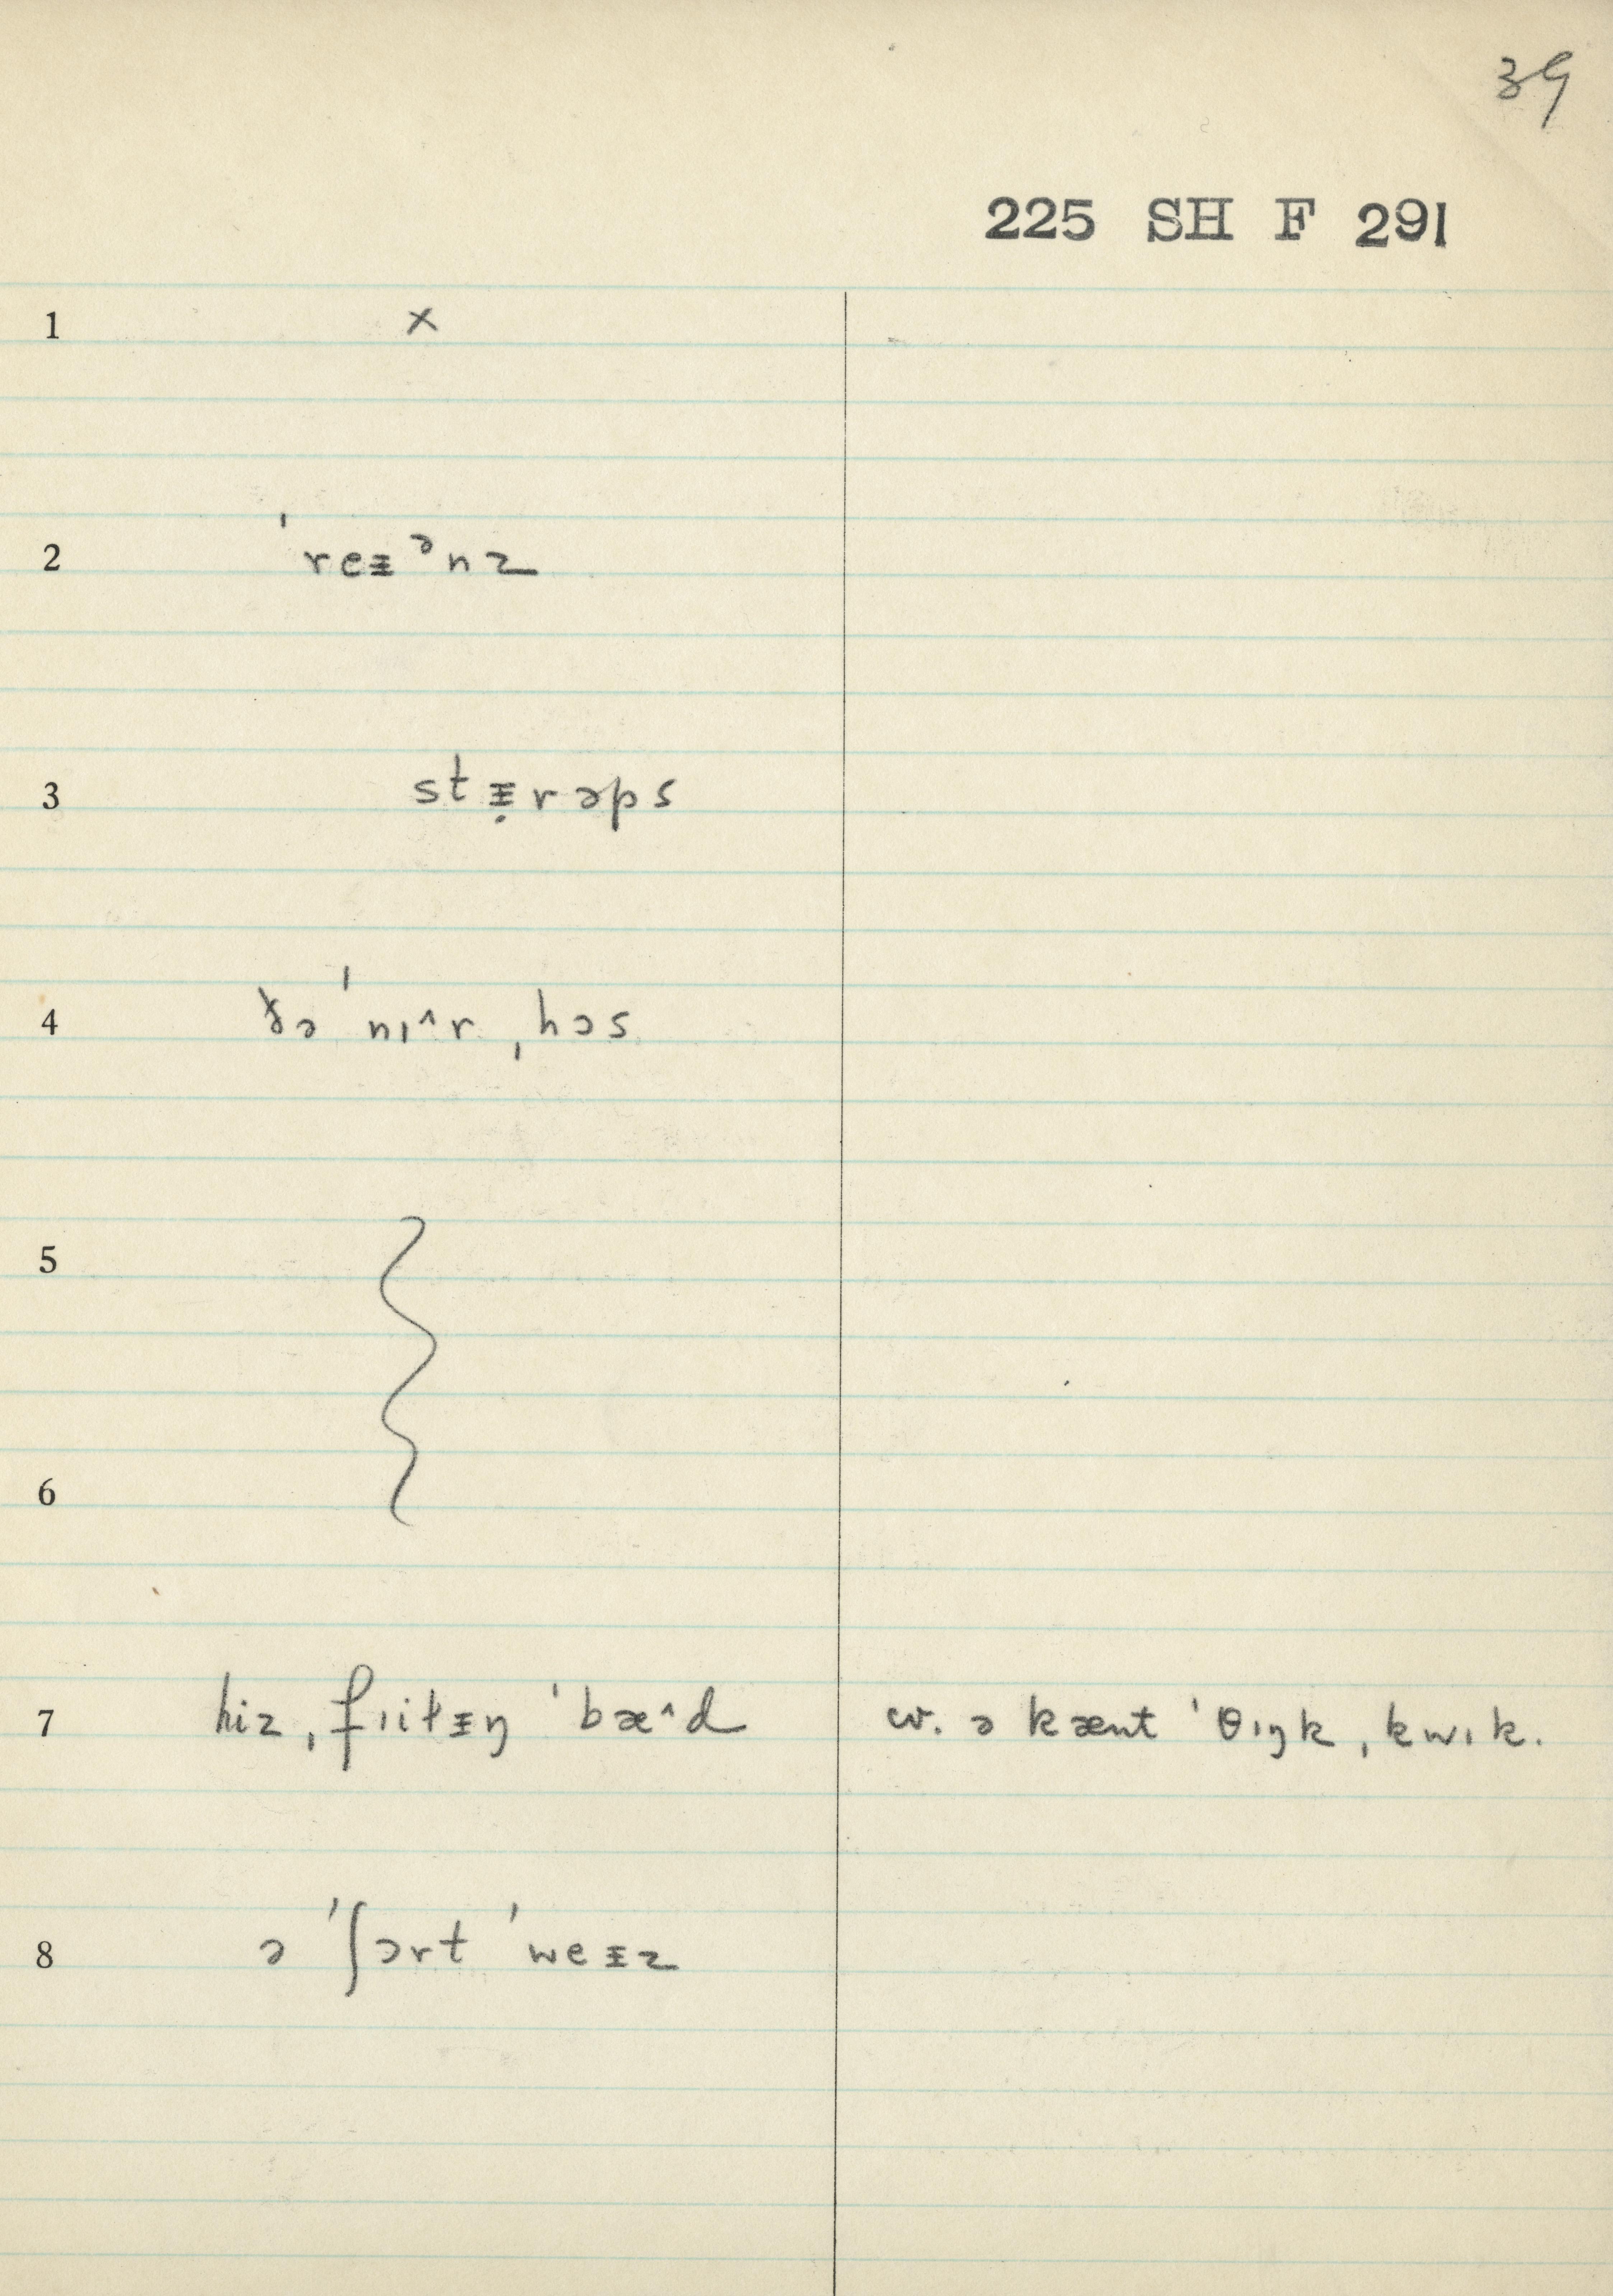 39
225 SH F 291
1 x
2 ˈreᵻᵊnz
3 stᵻ̣rəps
4 ðə ˈnɪ^r ˌhɔs
5
6
7 hiz ˌfɪitᵻŋ ˈbæ^d cv. ə kænt ˈθɪŋk ˌkwɪk.
8 ə ˈʃɔrt ˈweᵻz